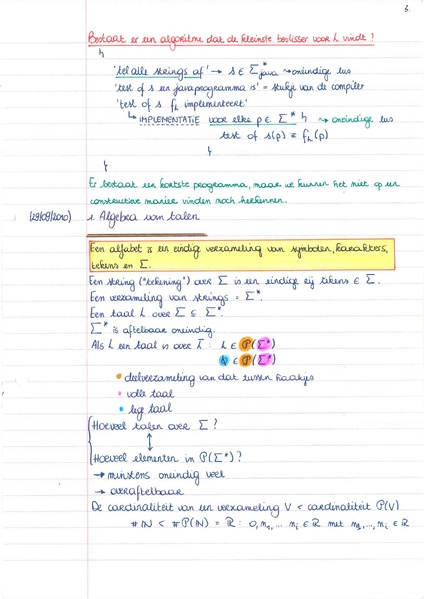 8.
Bestaat er een algoritme dat de kleinste beslisser voor L vindt?
↳
'tel alle strings af' → s ∈ Σ*java → oneindige lus
'test of s een javaprogramma is' = stukje van de compiler
'test of s fL implementeert'
↳ IMPLEMENTATIE voor elke p ∈ Σ* → oneindige lus
test of s(p) = fL(p)
Er bestaat een kortste programma, maar we kunnen het niet op een
constructieve manier vinden noch herkennen.
(29/09/2010) 1. Algebra van talen
Een alfabet is een eindig verzameling van symbolen, karakters,
tekens en Σ.
Een string ("tekening") over Σ is een eindige rij tekens ∈ Σ.
Een verzameling van strings = Σ*.
Een taal L over Σ ⊆ Σ*.
Σ* is aftelbaar oneindig.
Als L een taal is over L : L ∈ P(Σ*)
∈ P(Σ*)
• deelverzameling van dat tussen haakjes
• volle taal
• lege taal
Hoeveel talen over Σ ?
↕
Hoeveel elementen in P(Σ*) ?
→ minstens oneindig veel
→ overaftelbaar
De cardinaliteit van een verzameling V < cardinaliteit P(V)
#ℕ < #P(ℕ) = ℝ : 0,n₁,... nᵢ ∈ ℝ met n₁,..., nᵢ ∈ ℝ